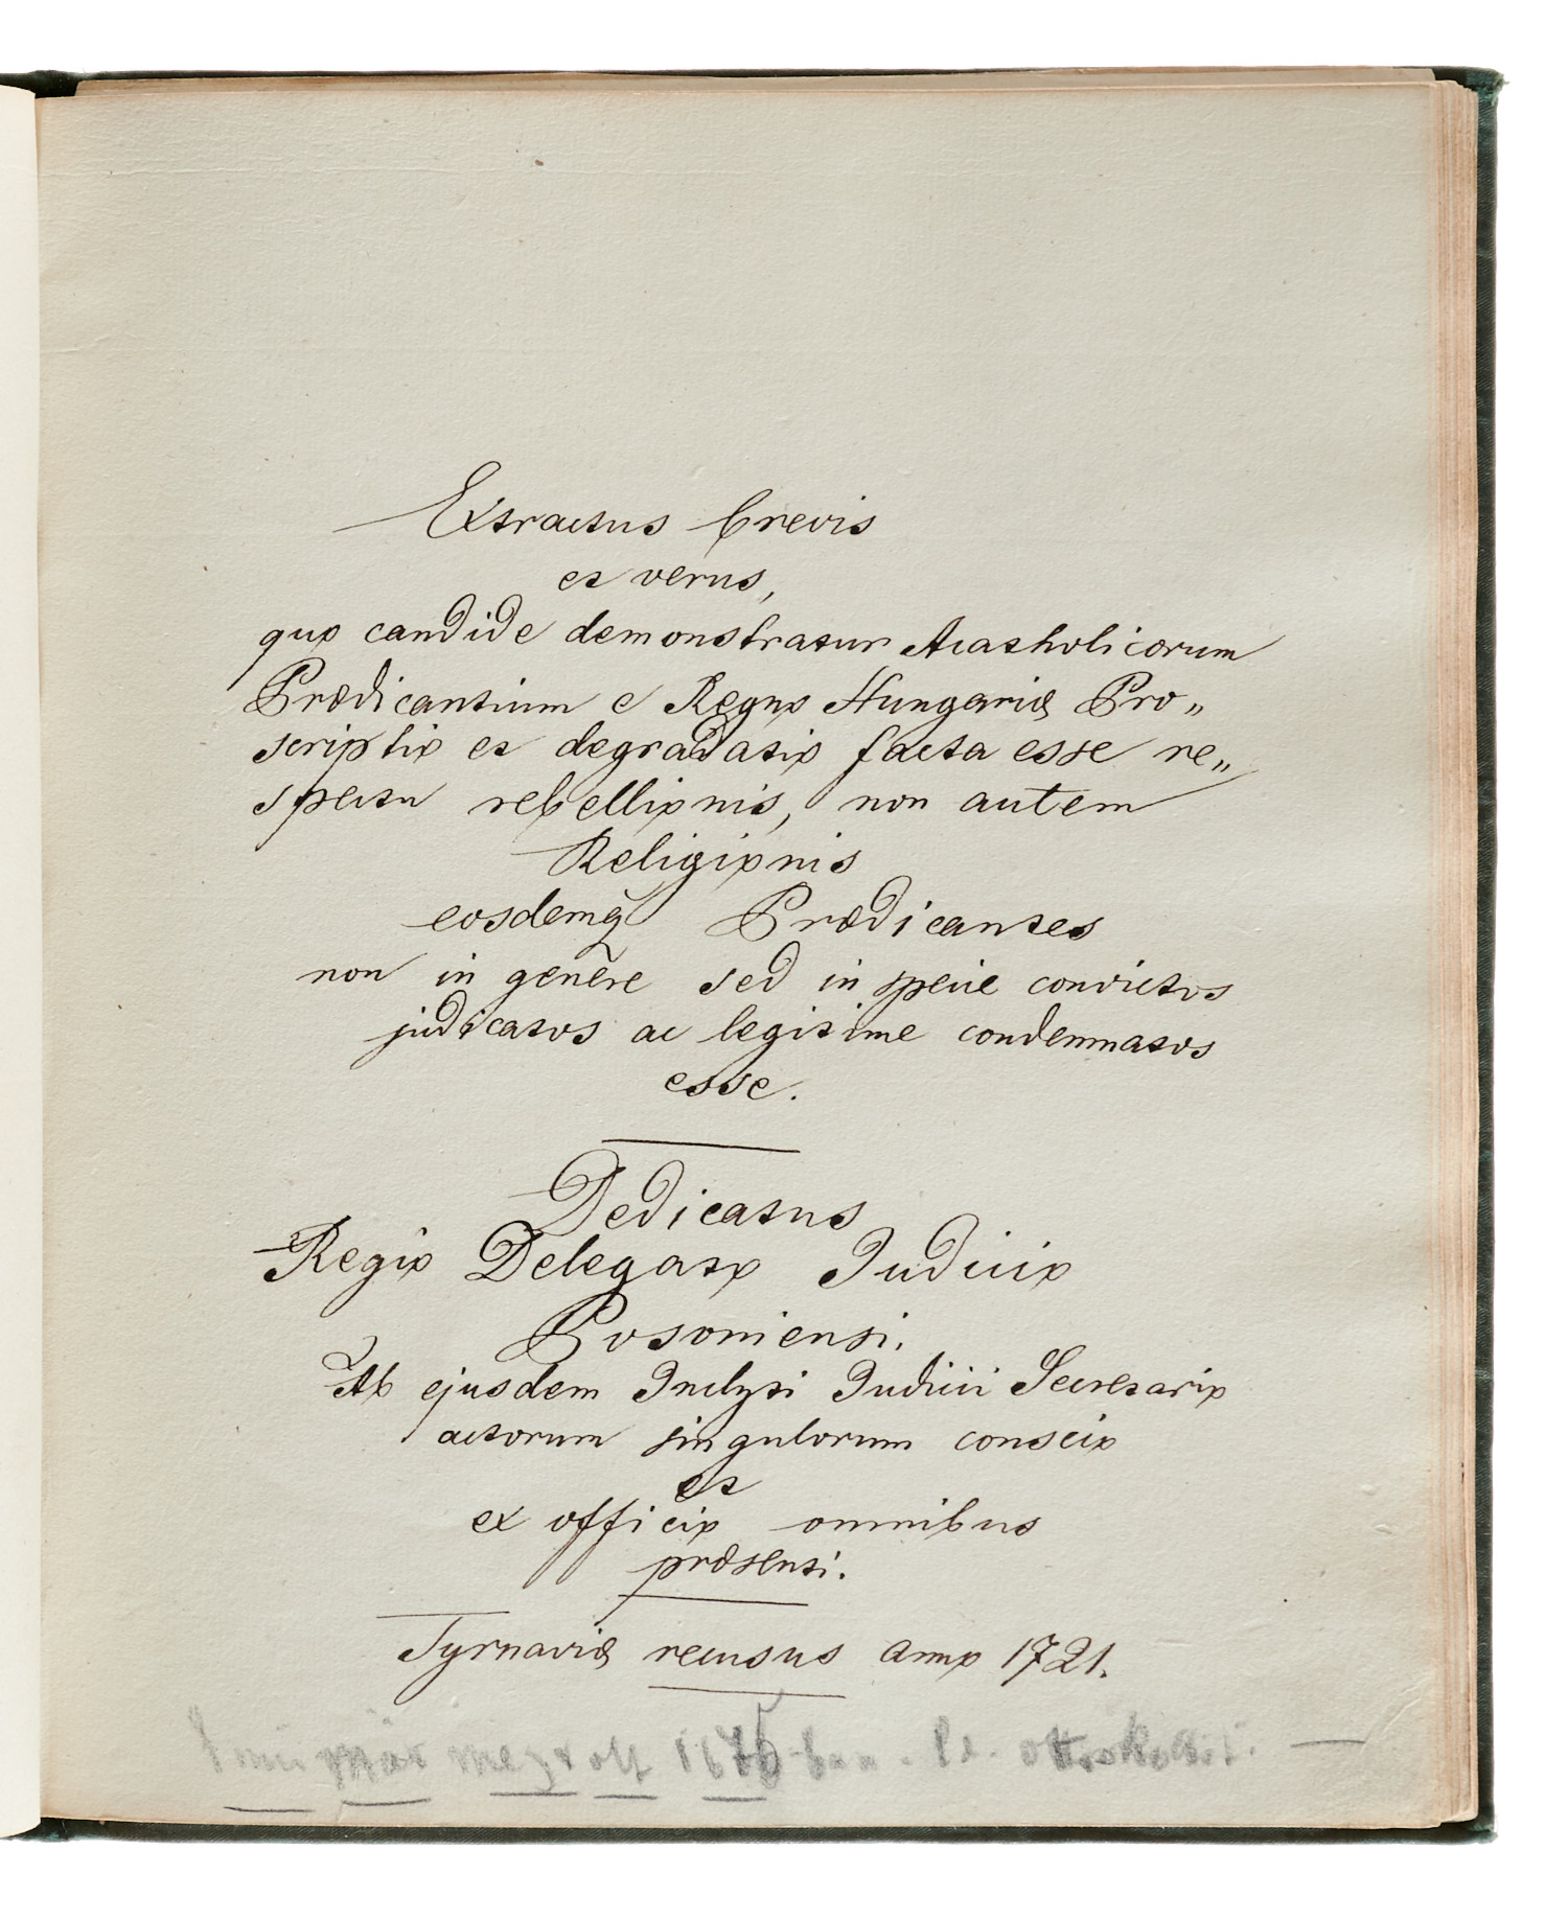 Extractus brevis
et verus,
quo candide demonstratur Acatholicorum
Prædicantium e Regno Hungariæ Pro„
scriptio et degradatio facta esse re„
spectu rebellionis, non autem
Religionis
eosdemq̃ Prædicantes
non in genere sed in specie convictos
judicatos ac legitime condemnatos
esse.
Dedicatus
Regio Delegato Judicio
Posoniensi.
Ab ejusdem Inclyti Judicii Secretario
actorum singulorum conscio
et
ex officio omnibus
præsenti.
Tyrnaviæ recusus anno 1721.
már megvolt 1675-ban.